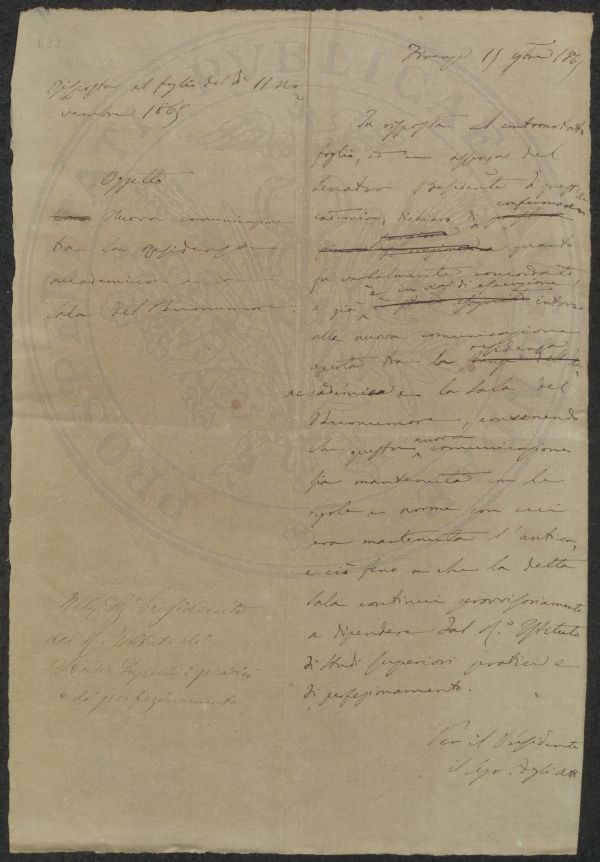 622
Firenze 15 9bre 1865
Risposta al foglio del dì 11 no
vembre 1865
Oggetto
Nuova comunicazione
tra la residenza
accademica e la
Sala del Buonumore.
In risposta al contronotato
foglio, ed in assenza del
Senator Presidente di quest'Ac
cademia, dichiaro di confermare
quanto
fu verbalmente concordato
e già è in via di esecuzione intorno
alla nuova comunicazione
aperta tra la residenza
accademica e la Sala del
Buonumore, convenendo
che questa nuova comunicazione
sia mantenuta con le
regole e norme con cui
era mantenuta l'antica,
e ciò fino a che la detta
Sala continui provvisoriamente
a dipendere dal R.º Istituto
di studi superiori pratici e
di perfezionamento.
Presidente
del R. Istituto di
Studi Superiori pratici
e di perfezionamento
Per il Presidente
il
PROSPERITATI PUBLICAE